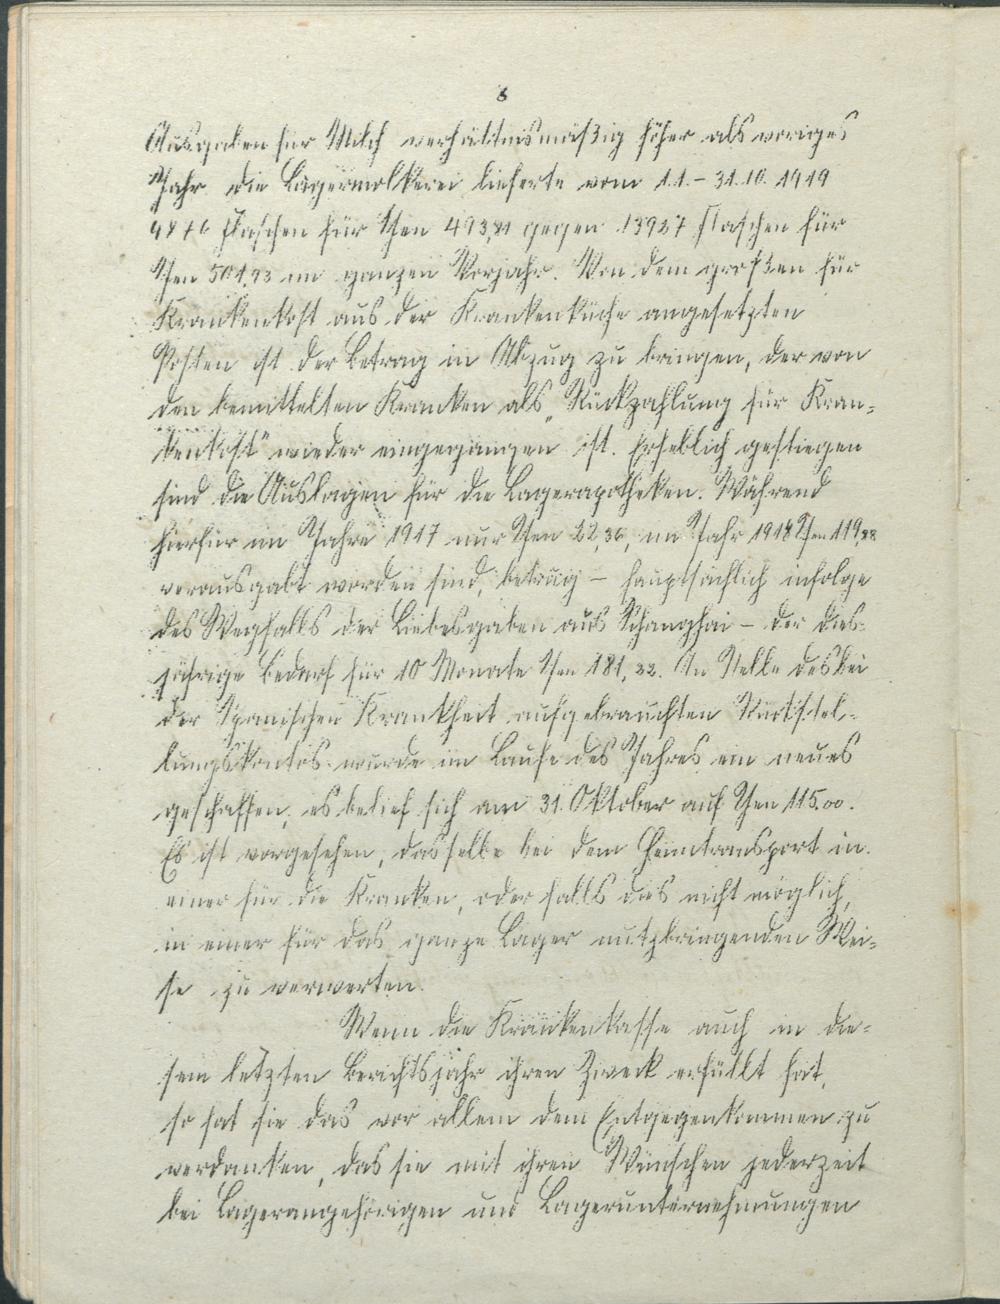 8
Ausgaben für Milch verhältnismäßig höher als voriges
Jahr. Die Lagermolkerei lieferte vom 1.1.–31.10.1919
Flaschen für Yen 493,81 gegen 13927 Flaschen für
Yen 501,93 im ganzen Vorjahr. Von dem großen für
Krankenkost aus der Krankenküche angesetzten
Posten ist der Betrag in Abzug zu bringen, der von
den bemittelten Kranken als „Rückzahlung für Kran-
kenkost" wieder eingegangen ist. Erheblich gestiegen
sind die Auslagen für die Lagerapotheken. Während
hierfür im Jahre 1917 nur Yen 22,36, im Jahr 1918 Yen 119,88
verausgabt worden sind, betrug – hauptsächlich infolge
des Wegfalls der Liebesgaben aus Schanghai – der dies-
jährige Bedarf für 10 Monate Yen 181,32. An Stelle des bei
der Spanischen Krankheit aufgebrauchten Rückstel-
lungskontos wurde im Laufe des Jahres ein neues
geschaffen, es belief sich am 31. Oktober auf Yen 115.00.
Es ist vorgesehen, dasselbe bei dem Heimtransport in
einer für die Kranken, oder falls dies nicht möglich,
in einer für das ganze Lager nutzbringenden Wei-
se zu verwerten.
Wenn die Krankenkasse auch in die-
sem letzten Berichtsjahr ihren Zweck erfüllt hat,
so hat sie das vor allem dem Entgegenkommen zu
verdanken, das sie mit ihren Wünschen jederzeit
bei Lagerangehörigen und Lagerunternehmungen